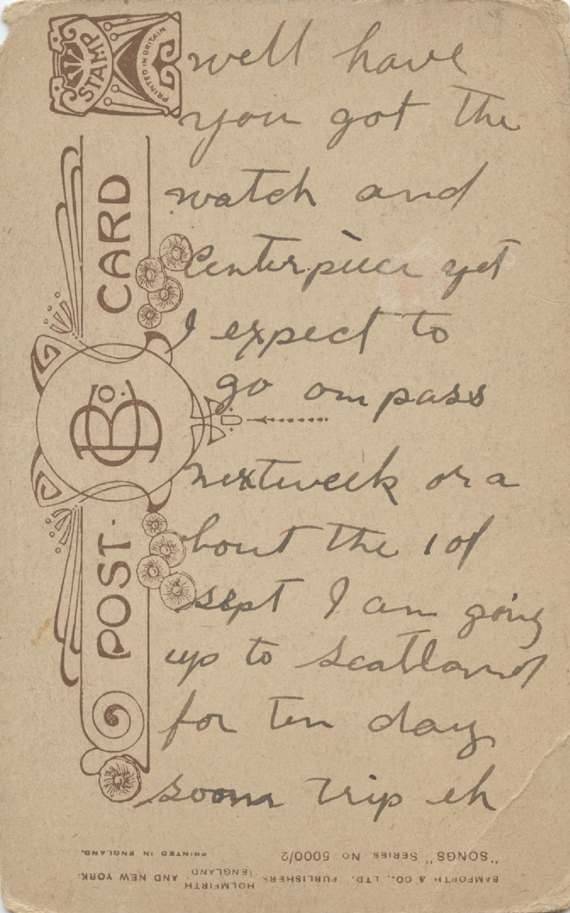 well have
you got the
watch and
Centerpiece yet
I expect to
go on pass
nextweek or a
bout the 1 of
sept I am going
up to Scatland
for ten day
soom trip eh
STAMP
PRINTED IN BRITAIN
POST CARD
B Co.
"SONGS" SERIES. NO 5000/2
PRINTED IN ENGLAND.
BAMFORTH & CO., LTD. PUBLISHERS HOLMFIRTH (ENGLAND) AND NEW YORK.